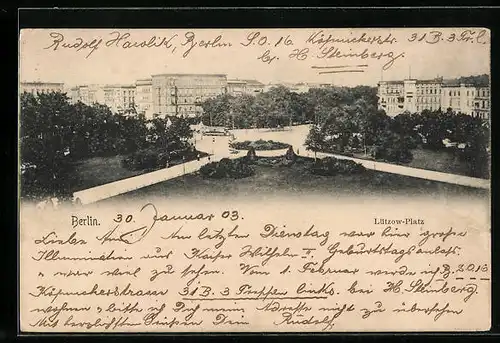 Rudolf Harolik, Berlin S.O. 16 Köpnickerstr. 31 B. 3 Tr. l.
bei H. Steinberg
Berlin. 30. Januar 03. Lützow-Platz
Liebe Am letzten Dienstag war hier große
Illumination aus Kaiser Wilhelm II. Geburtstags anlass.
u. war viel zu sehen. Vom 1. Februar werde ich B. S.O. 16
Köpnickerstrasse 31 B. 3 Treppen links. bei H. Steinberg
wohnen, bitte ich Dich meine Adresse nicht zu übersehen
Mit herzlichsten Grüssen Dein Rudolf